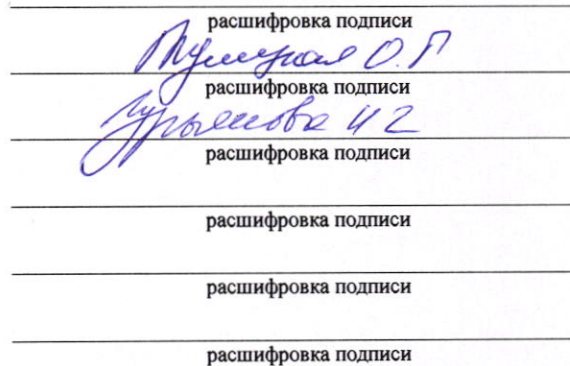 расшифровка подписи
О.П
расшифровка подписи
Гурьянова И Г
расшифровка подписи
расшифровка подписи
расшифровка подписи
расшифровка подписи